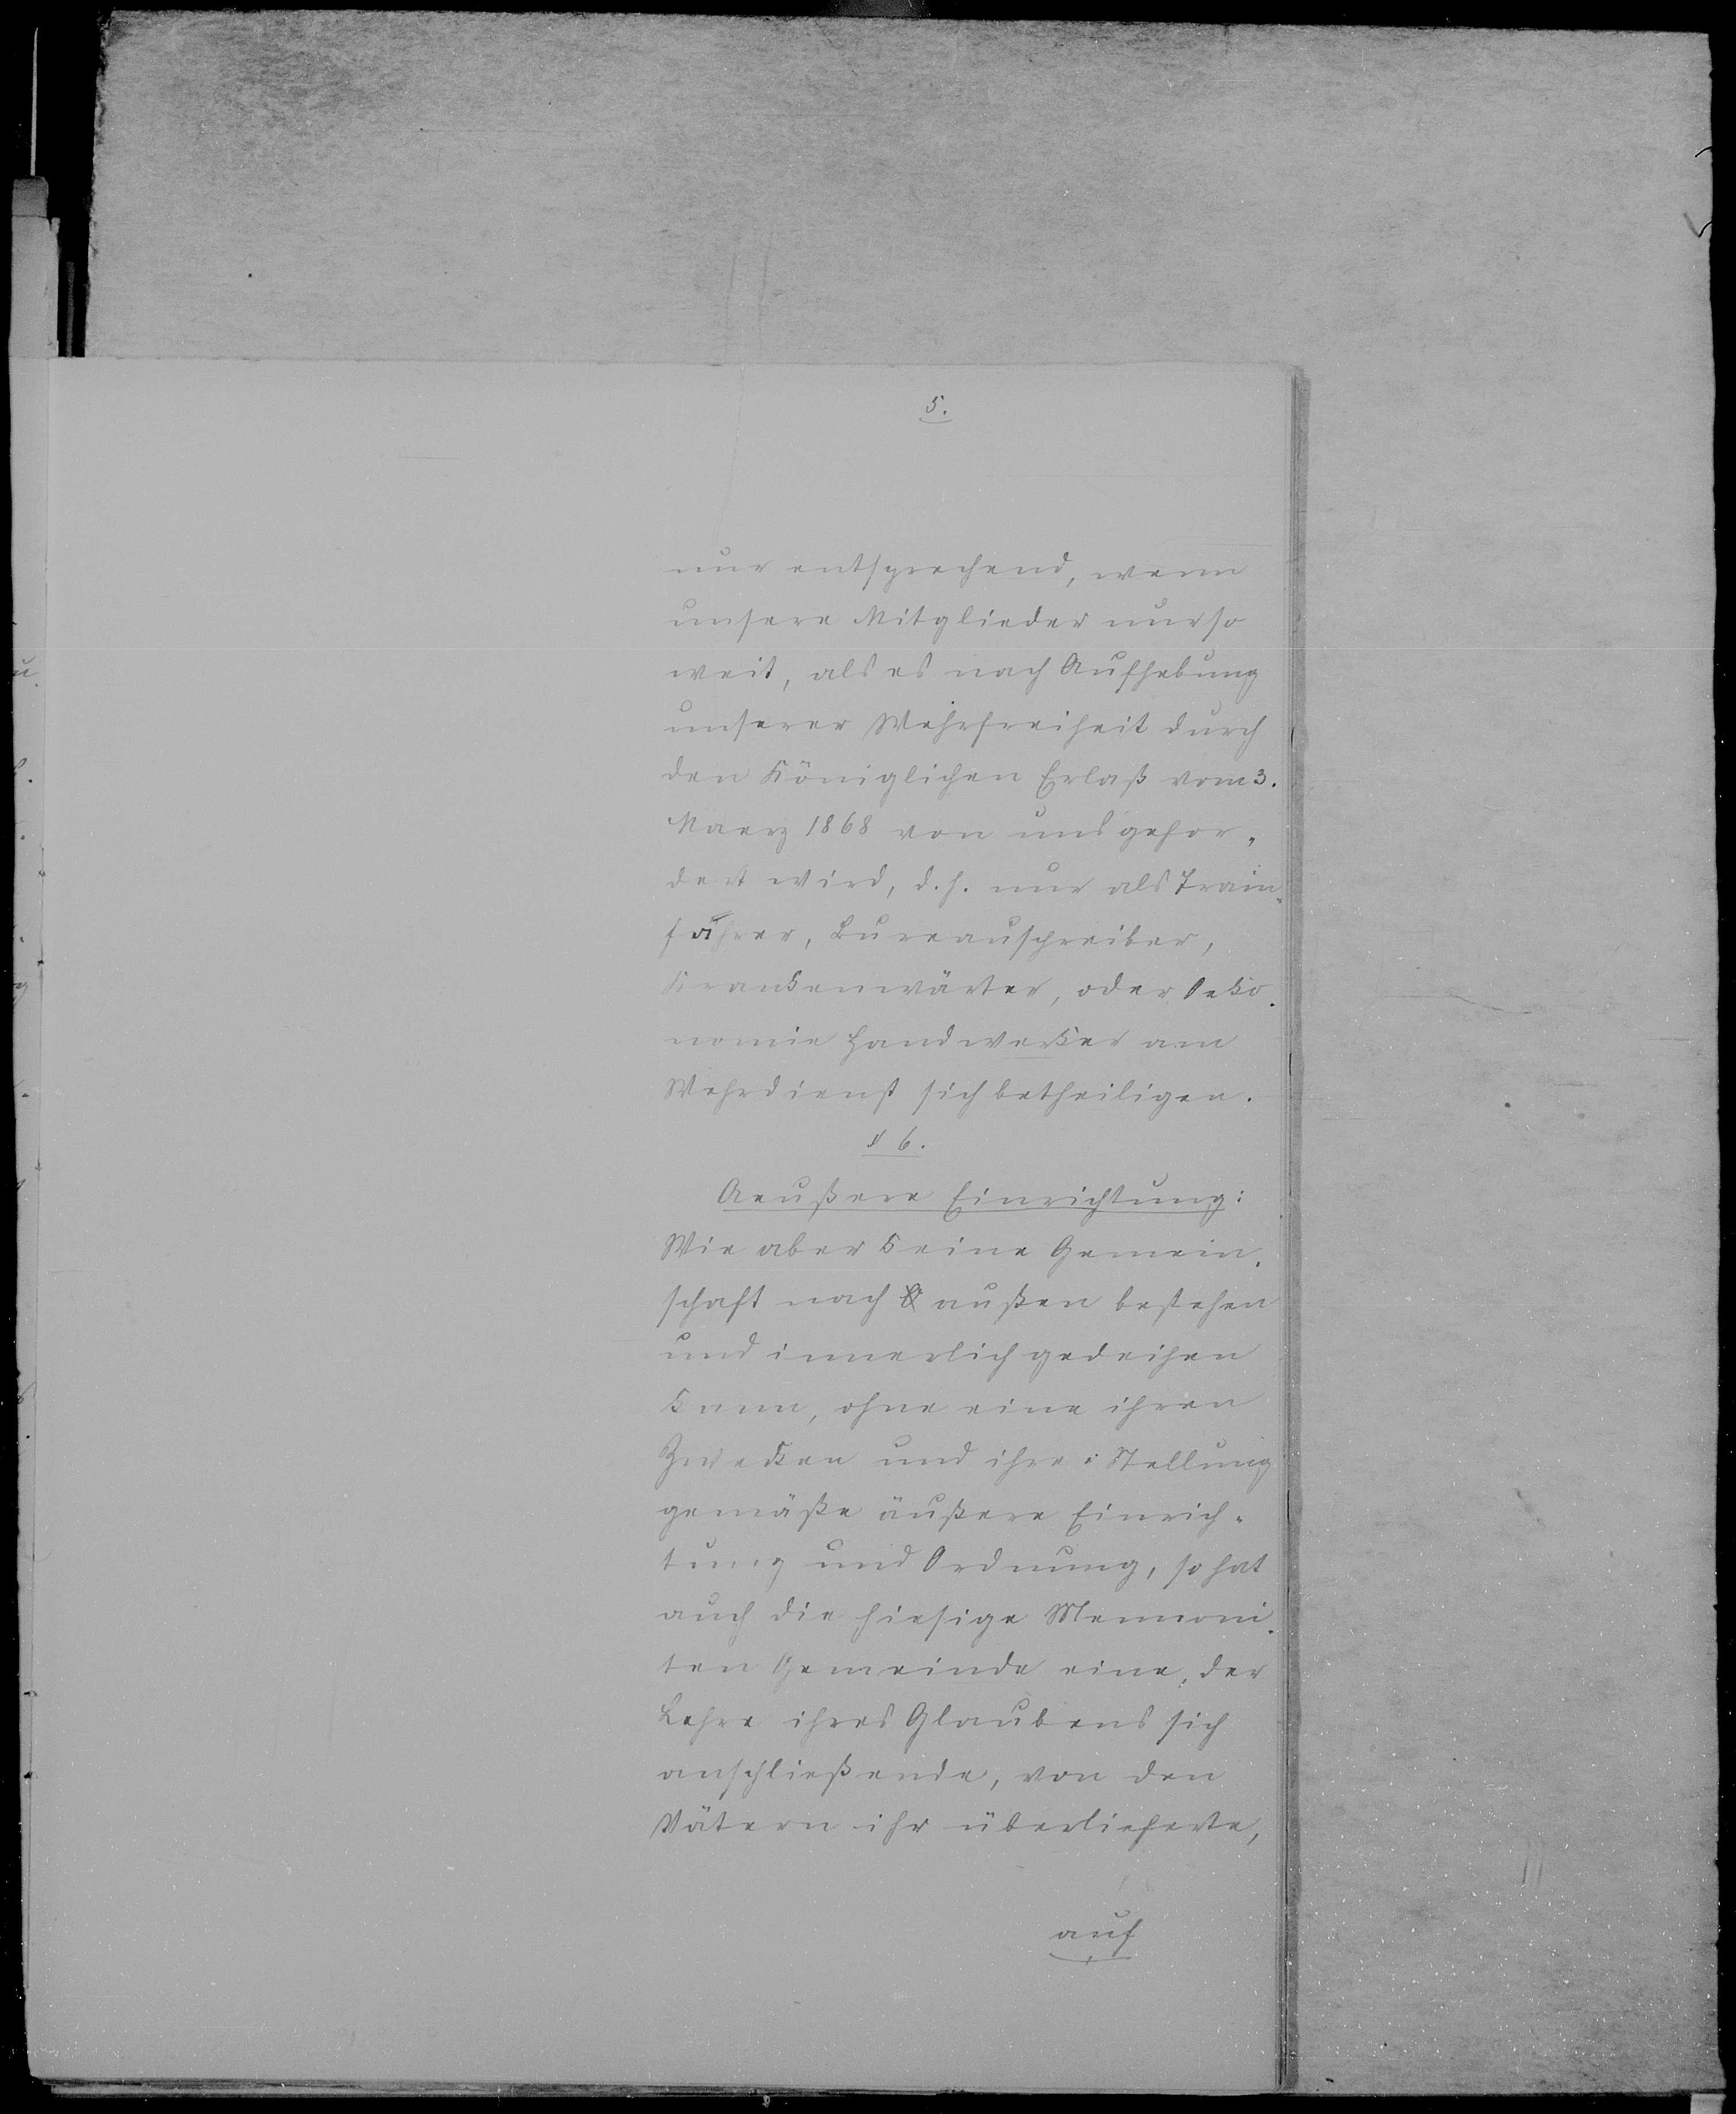 5.
nur entsprechend, wenn
unsere Mitglieder nur so
weit, als es nach Aufhebung
unserer Wehrfreiheit durch
den Königlichen Erlaß vom 3.
Maerz 1868 von uns gefor-
dert wird, d. h. nur als Train-
fahrer, Bureauschreiber,
Krankenwärter, oder Oeko-
nomie Handwerker am
Wehrdienst sich betheiligen.
§ 6.
Aeußere Einrichtung:
Wie aber keine Gemein-
schaft nach außen bestehen
und innerlich gedeihen
kann, ohne eine ihren
Zwecken und ihrer Stellung
gemäße äußere Einrich-
tung und Ordnung, so hat
auch die hiesige Mennoni-
ten Gemeinde eine, der
Lehre ihres Glaubens sich
anschließende, von den
Vätern ihr überlieferte,
auf